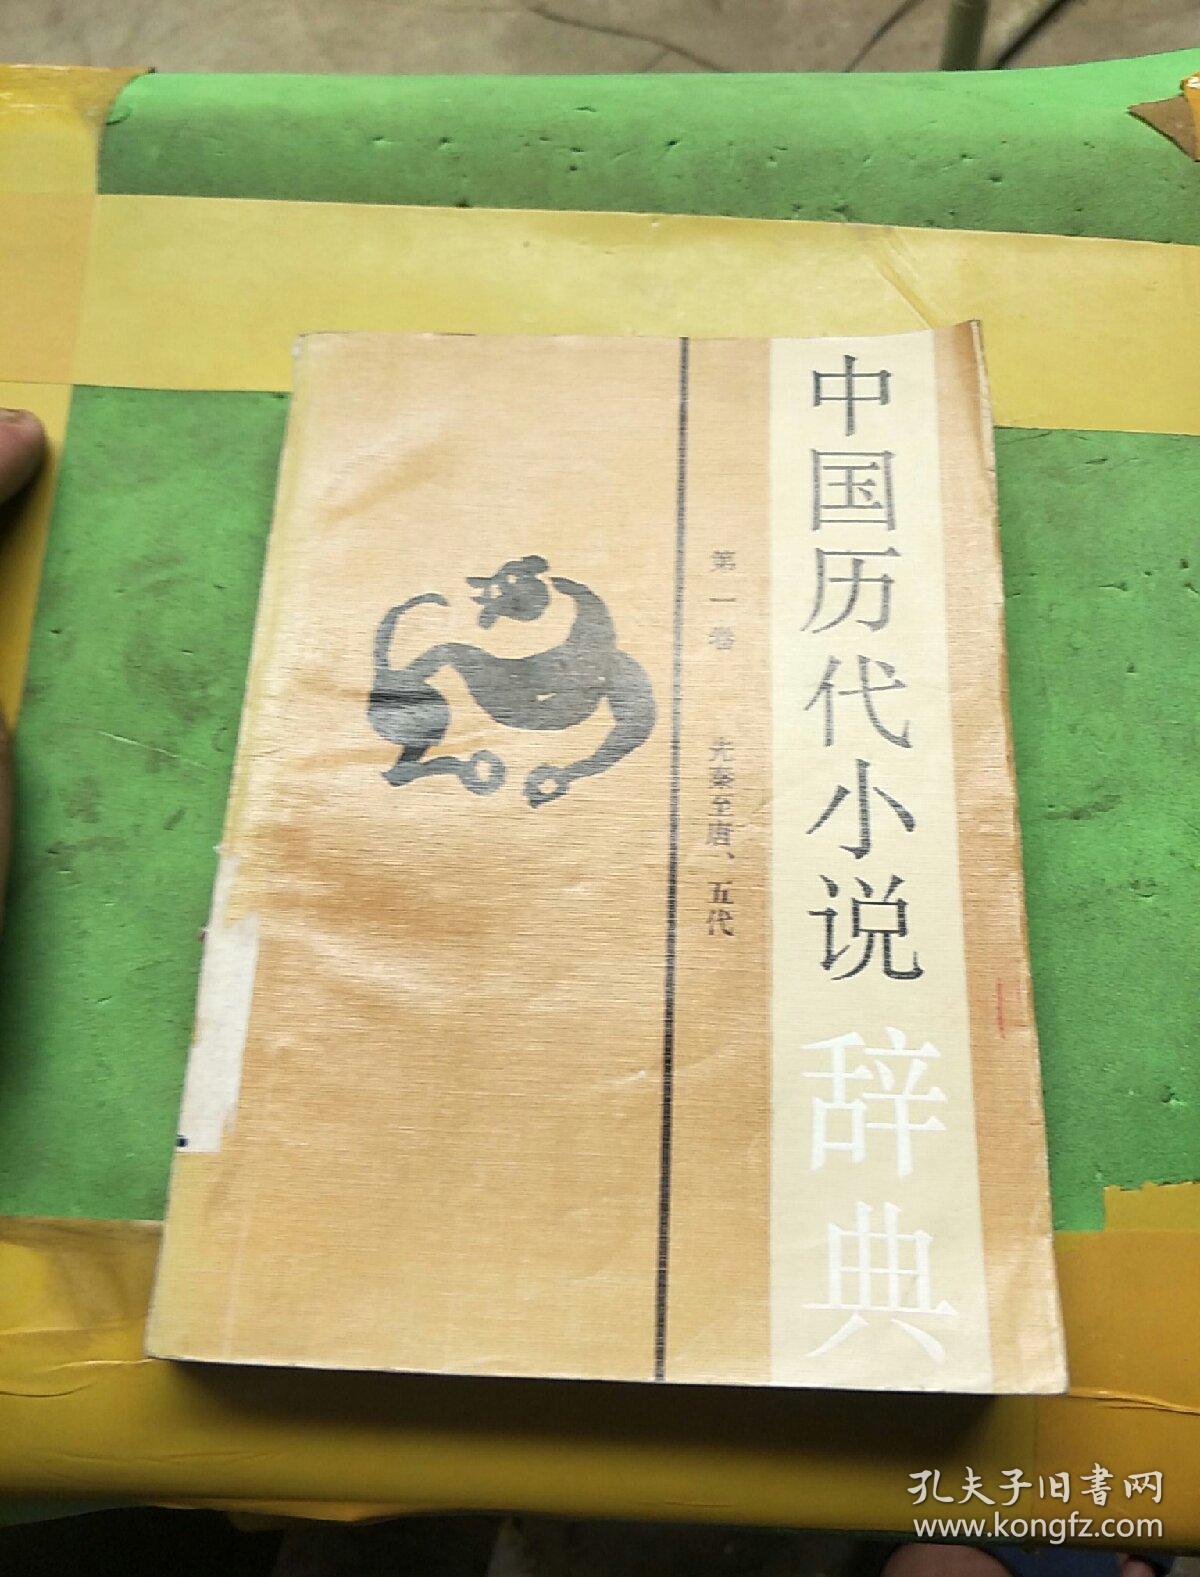 中国历代小说辞典
第一卷 先秦至唐、五代
孔夫子旧书网
www.kongfz.com